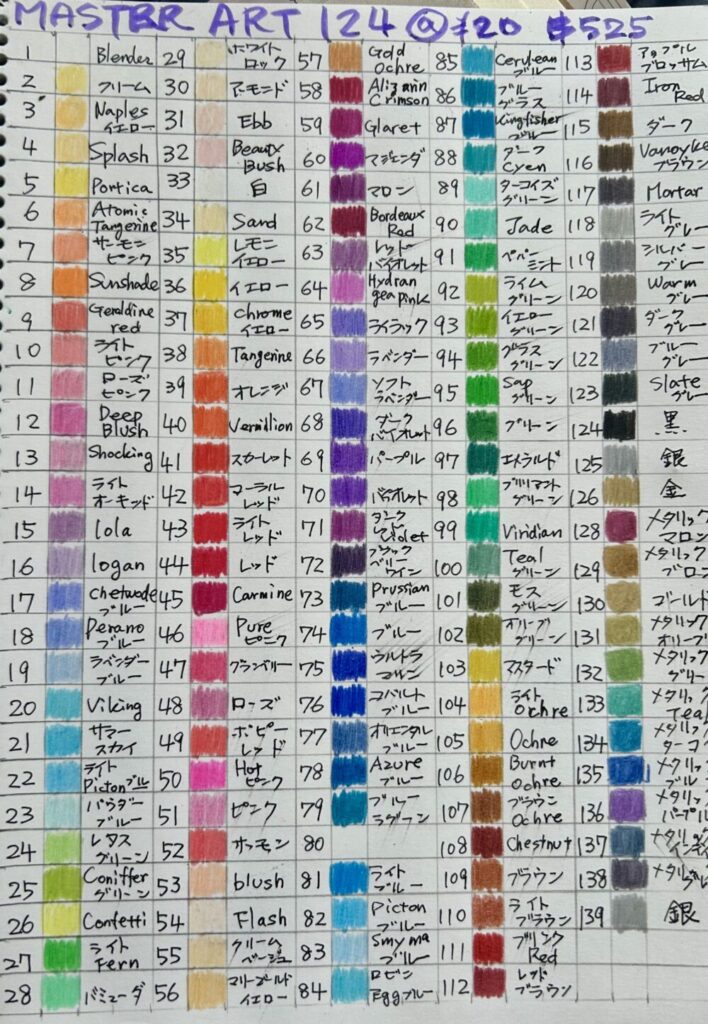 MASTER ART 124 @ ¥20 $525
1 Blender
2 クリーム
3 Naples イエロー
4 Splash
5 Portica
6 Atomic Tangerine
7 サーモンピンク
8 Sunshade
9 Geraldine red
10 ライトピンク
11 ローズピンク
12 Deep Blush
13 Shocking
14 ライトオーキッド
15 lola
16 logan
17 chetwode ブルー
18 Perano ブルー
19 ラベンダーブルー
20 Viking
21 サマースカイ
22 ライト Picton ブルー
23 パウダーブルー
24 レタスグリーン
25 Coniffer グリーン
26 Confetti
27 ライト Fern
28 バミューダ
29 ホワイトロック
30 アーモンド
31 Ebb
32 Beauty Bush
33 白
34 Sand
35 レモンイエロー
36 イエロー
37 Chrome イエロー
38 Tangerine
39 オレンジ
40 Vermillion
41 スカーレット
42 コーラルレッド
43 ライトレッド
44 レッド
45 Carmine
46 Pure ピンク
47 クランベリー
48 ローズ
49 ポピーレッド
50 Hot ピンク
51 ピンク
52 サーモン
53 blush
54 Flash
55 クリームベージュ
56 マリーゴールドイエロー
57 Gold Ochre
58 Alizarin Crimson
59 Glaret
60 マジェンダ
61 マロン
62 Bordeaux Red
63 レッドバイオレット
64 Hydrangea pink
65 ライラック
66 ラベンダー
67 ソフトラベンダー
68 ダークバイオレット
69 パープル
70 バイオレット
71 ダークレッド Violet
72 ブラックベリーワイン
73 Prussian ブルー
74 ブルー
75 ウルトラマリン
76 コバルトブルー
77 オリエンタルブルー
78 Azure ブルー
79 ブルーラグーン
80
81 ライトブルー
82 Picton ブルー
83 Smyrna ブルー
84 ロビン Egg ブルー
85 Cerulean ブルー
86 ブルーグラス
87 Kingfisher ブルー
88 ダーク Cyen
89 ターコイズグリーン
90 Jade
91 ペパーミント
92 ライムグリーン
93 イエローグリーン
94 グラスグリーン
95 Sap グリーン
96 グリーン
97 エメラルド
98 ブリリアントグリーン
99 Viridian
100 Teal グリーン
101 モスグリーン
102 オリーブグリーン
103 マスタード
104 ライト Ochre
105 Ochre
106 Burnt Ochre
107 ブラウン Ochre
108 Chestnut
109 ブラウン
110 ライトブラウン
111 ブリンク Red
112 レッドブラウン
113 アップルブロッサム
114 Iron Red
115 ダーク
116 Vanoyke ブラウン
117 Mortar
118 ライトグレー
119 シルバーグレー
120 Warm グレー
121 ダークグレー
122 ブルーグレー
123 Slate グレー
124 黒
125 銀
126 金
128 メタリックマロン
129 メタリックブロン
130 ゴールド
131 メタリックオリーブ
132 メタリックグリー
133 メタリック Teal
134 メタリックターコ
135 メタリックブル
136 メタリックパープル
137 メタリックインディ
138 メタリックグレ
139 銀